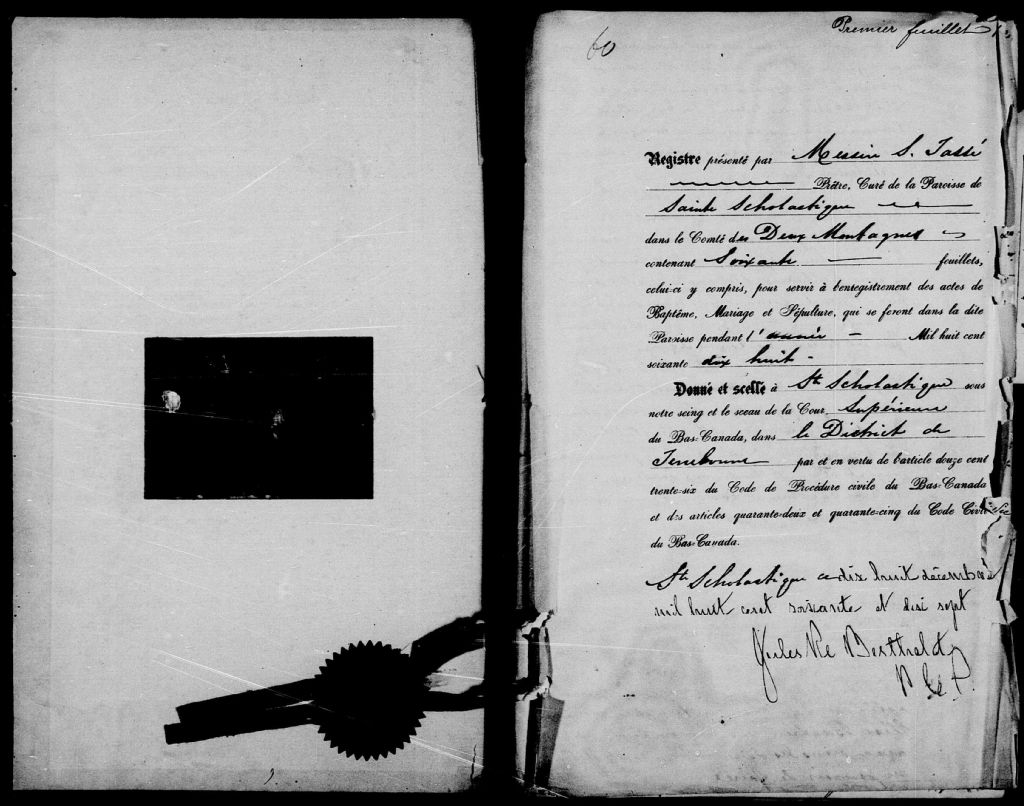 Premier feuillet
60
Registre présenté par Messire S. Tassé
Prêtre, Curé de la Paroisse de
Sainte Scholastique
dans le Comté des Deux Montagnes
contenant Soixante feuillets,
celui-ci y compris, pour servir à l'enregistrement des actes de
Baptême, Mariage et Sépulture, qui se feront dans la dite
Paroisse pendant l'année Mil huit cent
soixante dix huit
Donné et scellé à Ste Scholastique sous
notre seing et le sceau de la Cour Supérieure
du Bas-Canada, dans le District de
Terrebonne par et en vertu de l'article douze cent
trente-six du Code de Procédure civile du Bas-Canada
et des articles quarante-deux et quarante-cinq du Code Civil
du Bas-Canada.
Ste Scholastique ce dix huit décembre
mil huit cent soixante et dix sept
Jules Re Berthelot